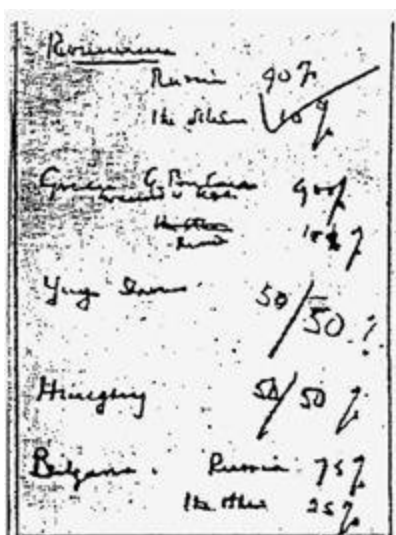 Roumania
Russia 90%
The others 10%
Greece G. Britain 90%
accord USA
The others
Russia 10%
Yugo Slavia 50/50 %
Hungary 50/50 %
Bulgaria. Russia 75%
The others 25%